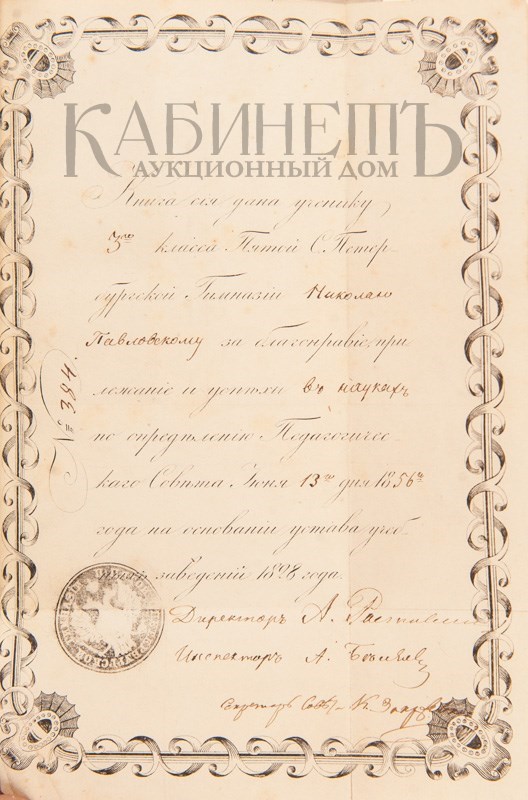 КАБИНЕТЪ
АУКЦИОННЫЙ ДОМ
Книга сія дана ученику
3го класса Пятой С. Петер-
бургской Гимназіи Николаю
Павловскому за благонравіе, при
лежаніе и успѣхи въ наукахъ
по опредѣленію Педагогичес-
каго Совѣта Іюня 13го дня 1856го
года на основаніи устава учеб.
заведеній 1828 года.
№ 384.
Директоръ А.
Инспекторъ А. Бѣляевъ
Секретарь